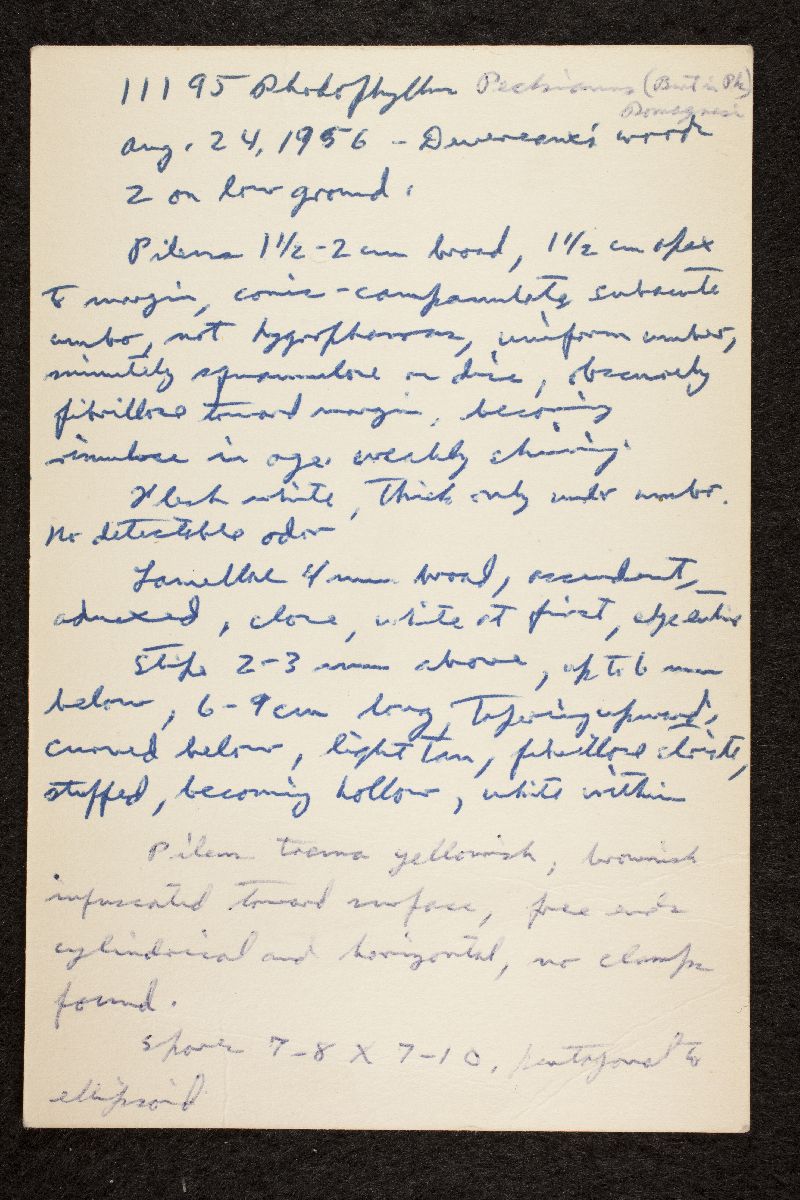 11195 Rhodophyllus (Burt in Pk)
Romagnesi
Aug. 24, 1956 - Devereaux's woods
2 on low ground.
Pileus 1 1/2 - 2 cm broad, 1 1/2 cm apex
to margin, conic-campanulate, subacute
umbo, not hygrophanous, uniform umber,
minutely squamulose on disc, obscurely
fibrillose toward margin, becoming
rimulose in age, weakly shining.
Flesh white, thick only under umbo.
No detectable odor
Lamellae 4 mm broad, ascendent,
adnexed, close, white at first, edge entire
Stipe 2-3 mm above, up to 6 mm
below, 6-9 cm long, tapering upward,
curved below, light tan, fibrillose striate,
stuffed, becoming hollow, white within
Pileus trama yellowish, brownish
infuscated toward surface, free ends
cylindrical and horizontal, no clamps
found.
Spores 7-8 X 7-10, pentagonal to
ellipsoid